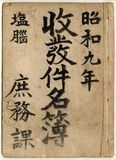 昭和九年
收發件名簿
塩腦
庶務課